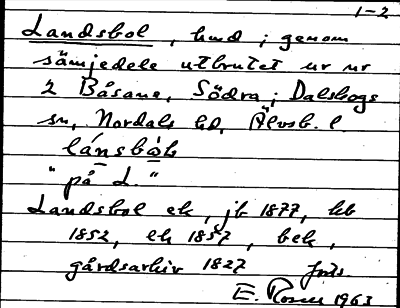 1-2
Landsbol, hmd i genom
sämjedele utbrutet ur nr
2 Båsane, Södra; Dalskogs
sn, Nordals hd, Älvsb. l.
lánsbòh
"på L."
Landsbol ek, jb 1877, kb
1852, ek 1857, bek,
gårdsarkiv 1827
E. Rosen 1963